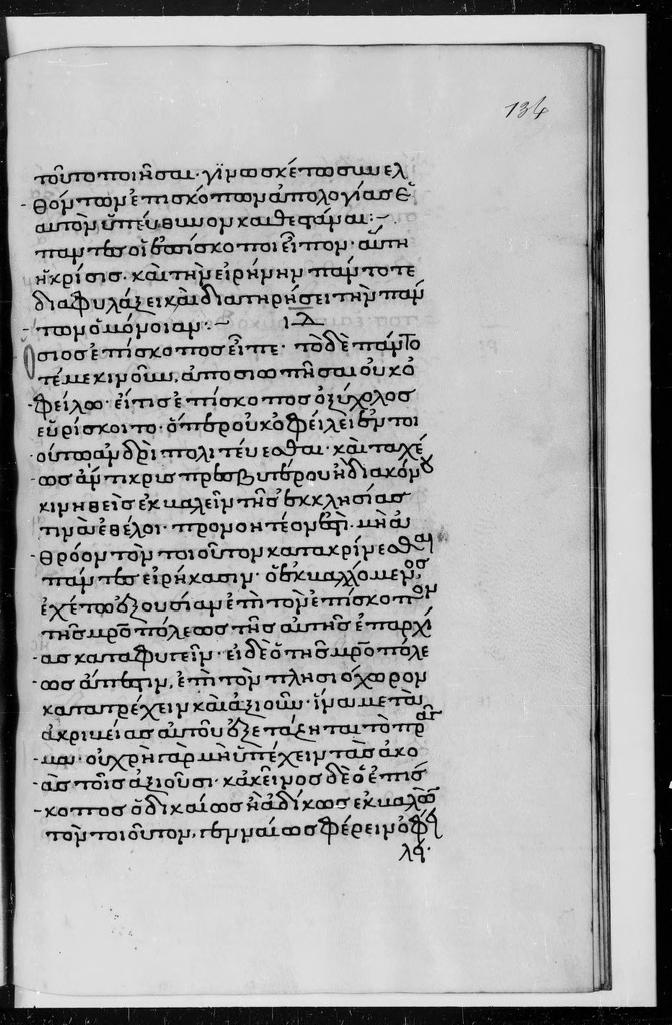 134
τοῦτο ποιῆσαι· γινωσκέτω συνελ
θόντων ἐπισκόπων ἀπολογίας ἑ
αυτὸν ὑπεύθυνον καθεστάναι:~
πάντες οἱ ἐπίσκοποι εἶπον· αὕτη
ἡ κρίσις· καὶ τὴν εἰρήνην πάντοτε
διαφυλάξει καὶ διατηρήσει τὴν πάν
των ὁμόνοιαν:~ ιδ
Ὅσιος ἐπίσκοπος εἶπε· τὸ δὲ πάντο
τέ με κινοῦν, ἀποσιωπῆσαι οὐκ ὀ
φείλω· εἴ τις ἐπίσκοπος ὀξύχολος
εὑρίσκοιτο· ὅπερ οὐκ ὀφείλει ἐν τοι
ούτω ἀνδρὶ πολιτεύεσθαι· καὶ ταχέ
ως ἄντικρις πρεσβυτέρου ἢ διακόνου
κινηθεὶς ἐκβαλεῖν τῆς ἐκκλησίας
τινὰ ἐθέλοι· προνοητέον ἐστὶ· μὴ ἀ
θρόον τὸν τοιοῦτον κατακρίνεσθαι
πάντες εἰρήκασιν· ὁ ἐκβαλλόμενος
ἐχέτω ἐξουσίαν ἐπὶ τὸν ἐπίσκοπον
τῆς μροπόλεως τῆς αὐτῆς ἐπαρχί
ας καταφυγεῖν· εἰ δὲ ὁ τῆς μροπόλε
ως ἄπεστιν, ἐπὶ τὸν πλησιόχωρον
κατατρέχειν καὶ ἀξιοῦν· ἵνα μετὰ
ἀκριβείας αὐτοῦ ἐξετάζηται τὸ πρᾶγ
μα· οὐ χρὴ γὰρ μὴ ὑπέχειν τὰς ἀκο
ὰς τοῖς ἀξιοῦσι· κἀκεῖνος δὲ ὁ ἐπίσ
κοπος ὁ δικαίως ἢ ἀδίκως ἐκβαλὼν
τὸν τοιοῦτον, γενναίως φέρειν ὀφεί
λει·